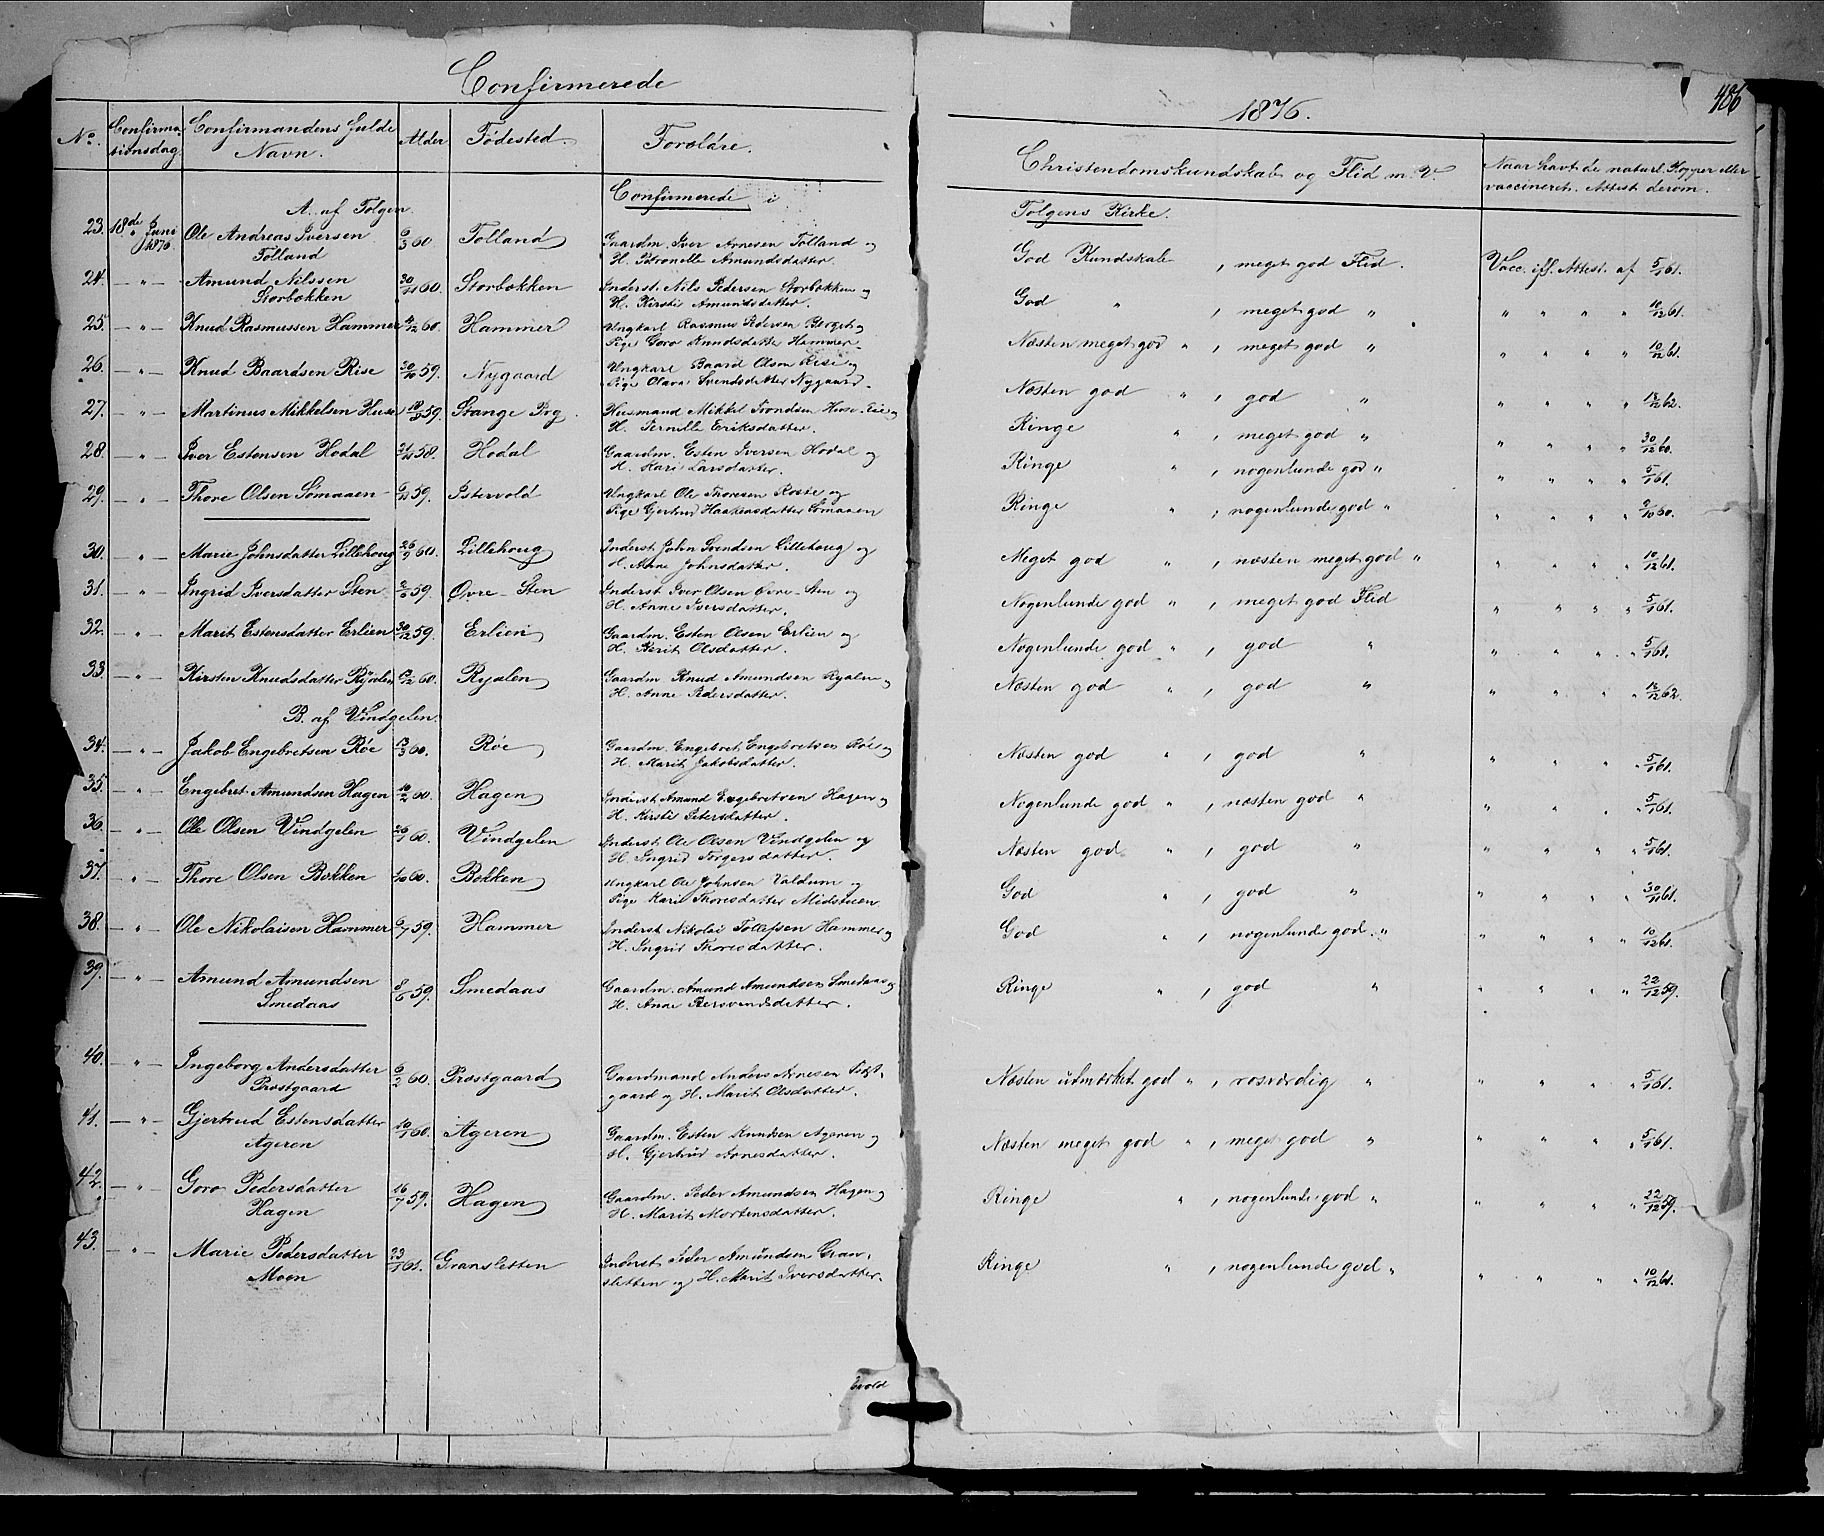 Confirmerede
1876.
486
No. Confirmationsdag. Confirmandens fulde Navn. Alder Fødested. Forældre. Christendomskundskab og Flid m. V. Naar havt de naturl. Kopper eller vaccineret. Attest derom.
A. af Tolgen. Confirmerede i Tolgens Kirke.
23. 18de Juni 1876 Ole Andreas Iversen Tolland 6/3 60. Tolland Gaardm. Iver Arnesen Tolland og H. Petronelle Amundsdatter. God Kundskab, meget god Flid. Vacc. iflg. Attest. af 5/1 61.
24. — " — Amund Nilssen Storbækken 60. Storbækken Inderst. Nils Pedersen Storbækken og H. Kirsti Amundsdatter. God ", meget god " " " " " 10/12 61.
25. — " — Knud Rasmussen Hammer 4/12 60. Hammer Ungkarl Rasmus Pedersen Berget og Pige Goro Knudsdatter Hammer. Næsten meget god ", meget god " " " " " 10/12 61.
26. — " — Knud Baardsen Rise 30/10 59. Nygaard Ungkarl Baard Olsen Rise og Pige Olava Svendsdatter Nygaard. Næsten god ", god " " " " " 18/12 62.
27. — " — Martinus Mikkelsen Huse 59. Stange Prg. Husmand Mikkel Trondsen Huse-Eie og H. Pernille Eriksdatter. Ringe ", meget god " " " " " 30/12 60.
28. — " — Iver Estensen Hodal 58. Hodal Gaardm. Esten Iversen Hodal og H. Kari Larsdatter. Ringe ", nogenlunde god " " " " " 5/1 61.
29. — " — Thore Olsen Sømaaen 59. Istervold Ungkarl Ole Thoresen Røste og Pige Gjertrud Haakensdatter Sømaaen Ringe ", nogenlunde god " " " " " 2/10 60.
30. — " — Marie Johnsdatter Lillehoug 26/9 60. Lillehoug Inderst. John Svendsen Lillehoug og H. Anne Johnsdatter. Meget god ", næsten meget god " " " " " 10/12 61.
31. — " — Ingrid Iversdatter Sten 59. Øvre-Sten Inderst Iver Olsen Øvre-Sten og H. Anne Iversdatter. Nogenlunde god ", meget god Flid " " " " 5/1 61.
32. — " — Marit Estensdatter Erlien 30/12 59. Erlien Gaardm. Esten Olsen Erlien og H. Berit Olsdatter. Nogenlunde god ", god " " " " " 5/1 61.
33. — " — Kirsten Knudsdatter Ryalen 60. Ryalen Gaardm Knud Amundsen Ryalen og H. Anne Pedersdatter. Næsten god ", god " " " " " 18/12 62.
B. af Vindgelen.
34. — " — Jakob Engebretsen Røe 13/3 60. Røe Gaardm. Engebret Engebretsen Røe og H. Marit Jakobsdatter. Næsten god ", god " " " " " 5/1 61.
35. — " — Engebret Amundsen Hagen 10/2 60. Hagen Inderst. Amund Engebretsen Hagen og H. Kirsti Petersdatter. Nogenlunde god ", næsten god " " " " " 5/1 61.
36. — " — Ole Olsen Vindgelen 26/1 60. Vindgelen Inderst. Ole Olsen Vindgelen og H. Ingrid Torgersdatter. Næsten god ", god " " " " " 5/1 61.
37. — " — Thore Olsen Bækken 60. Bækken Ungkarl Ole Johnsen Valdum og Pige Kari Thoresdatter Midstuen. God ", god " " " " " 30/11 61.
38. — " — Ole Nikolaisen Hammer 6/7 59. Hammer Inderst Nikolai Tollefsen Hammer og H. Ingrid Thoresdatter. God ", nogenlunde god " " " " " 10/12 61.
39. — " — Amund Amundsen Smedaas 8/6 59. Smedaas Gaardm. Amund Amundsen Smedaas og H. Anne Bersvendsdatter. Ringe ", god " " " " " 22/12 59.
40. — " — Ingeborg Andersdatter Prøstgaard 6/2 60. Prøstgaard Gaardmand Anders Arnesen Præstgaard og H. Marit Olsdatter. Næsten udmærket god ", rosværdig " " " " " 5/1 61.
41. — " — Gjertrud Estensdatter Ageren 10/1 60. Ageren Gaardm. Esten Knudsen Ageren og H. Gjertrud Arnesdatter. Næsten meget god ", meget god " " " " " 5/1 61.
42. — " — Goro Pedersdatter Hagen 16/7 59. Hagen Gaardm. Peder Amundsen Hagen og H. Marit Mortensdatter. Ringe ", nogenlunde god " " " " " 22/12 59.
43. — " — Marie Pedersdatter Moen 23/1 61. Gransletten Inderst Peder Amundsen Gransletten og H. Marit Iversdatter. Ringe ", nogenlunde god " " " " " 10/12 61.